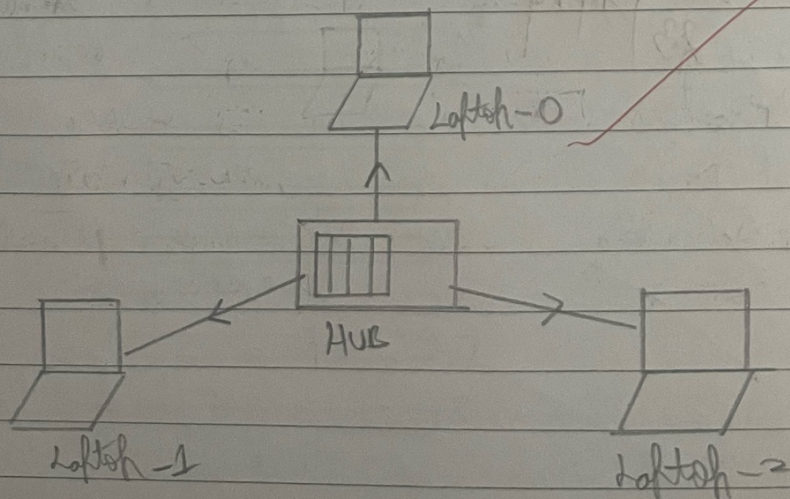 Laptop-0
HUB
Laptop-1
Laptop-2